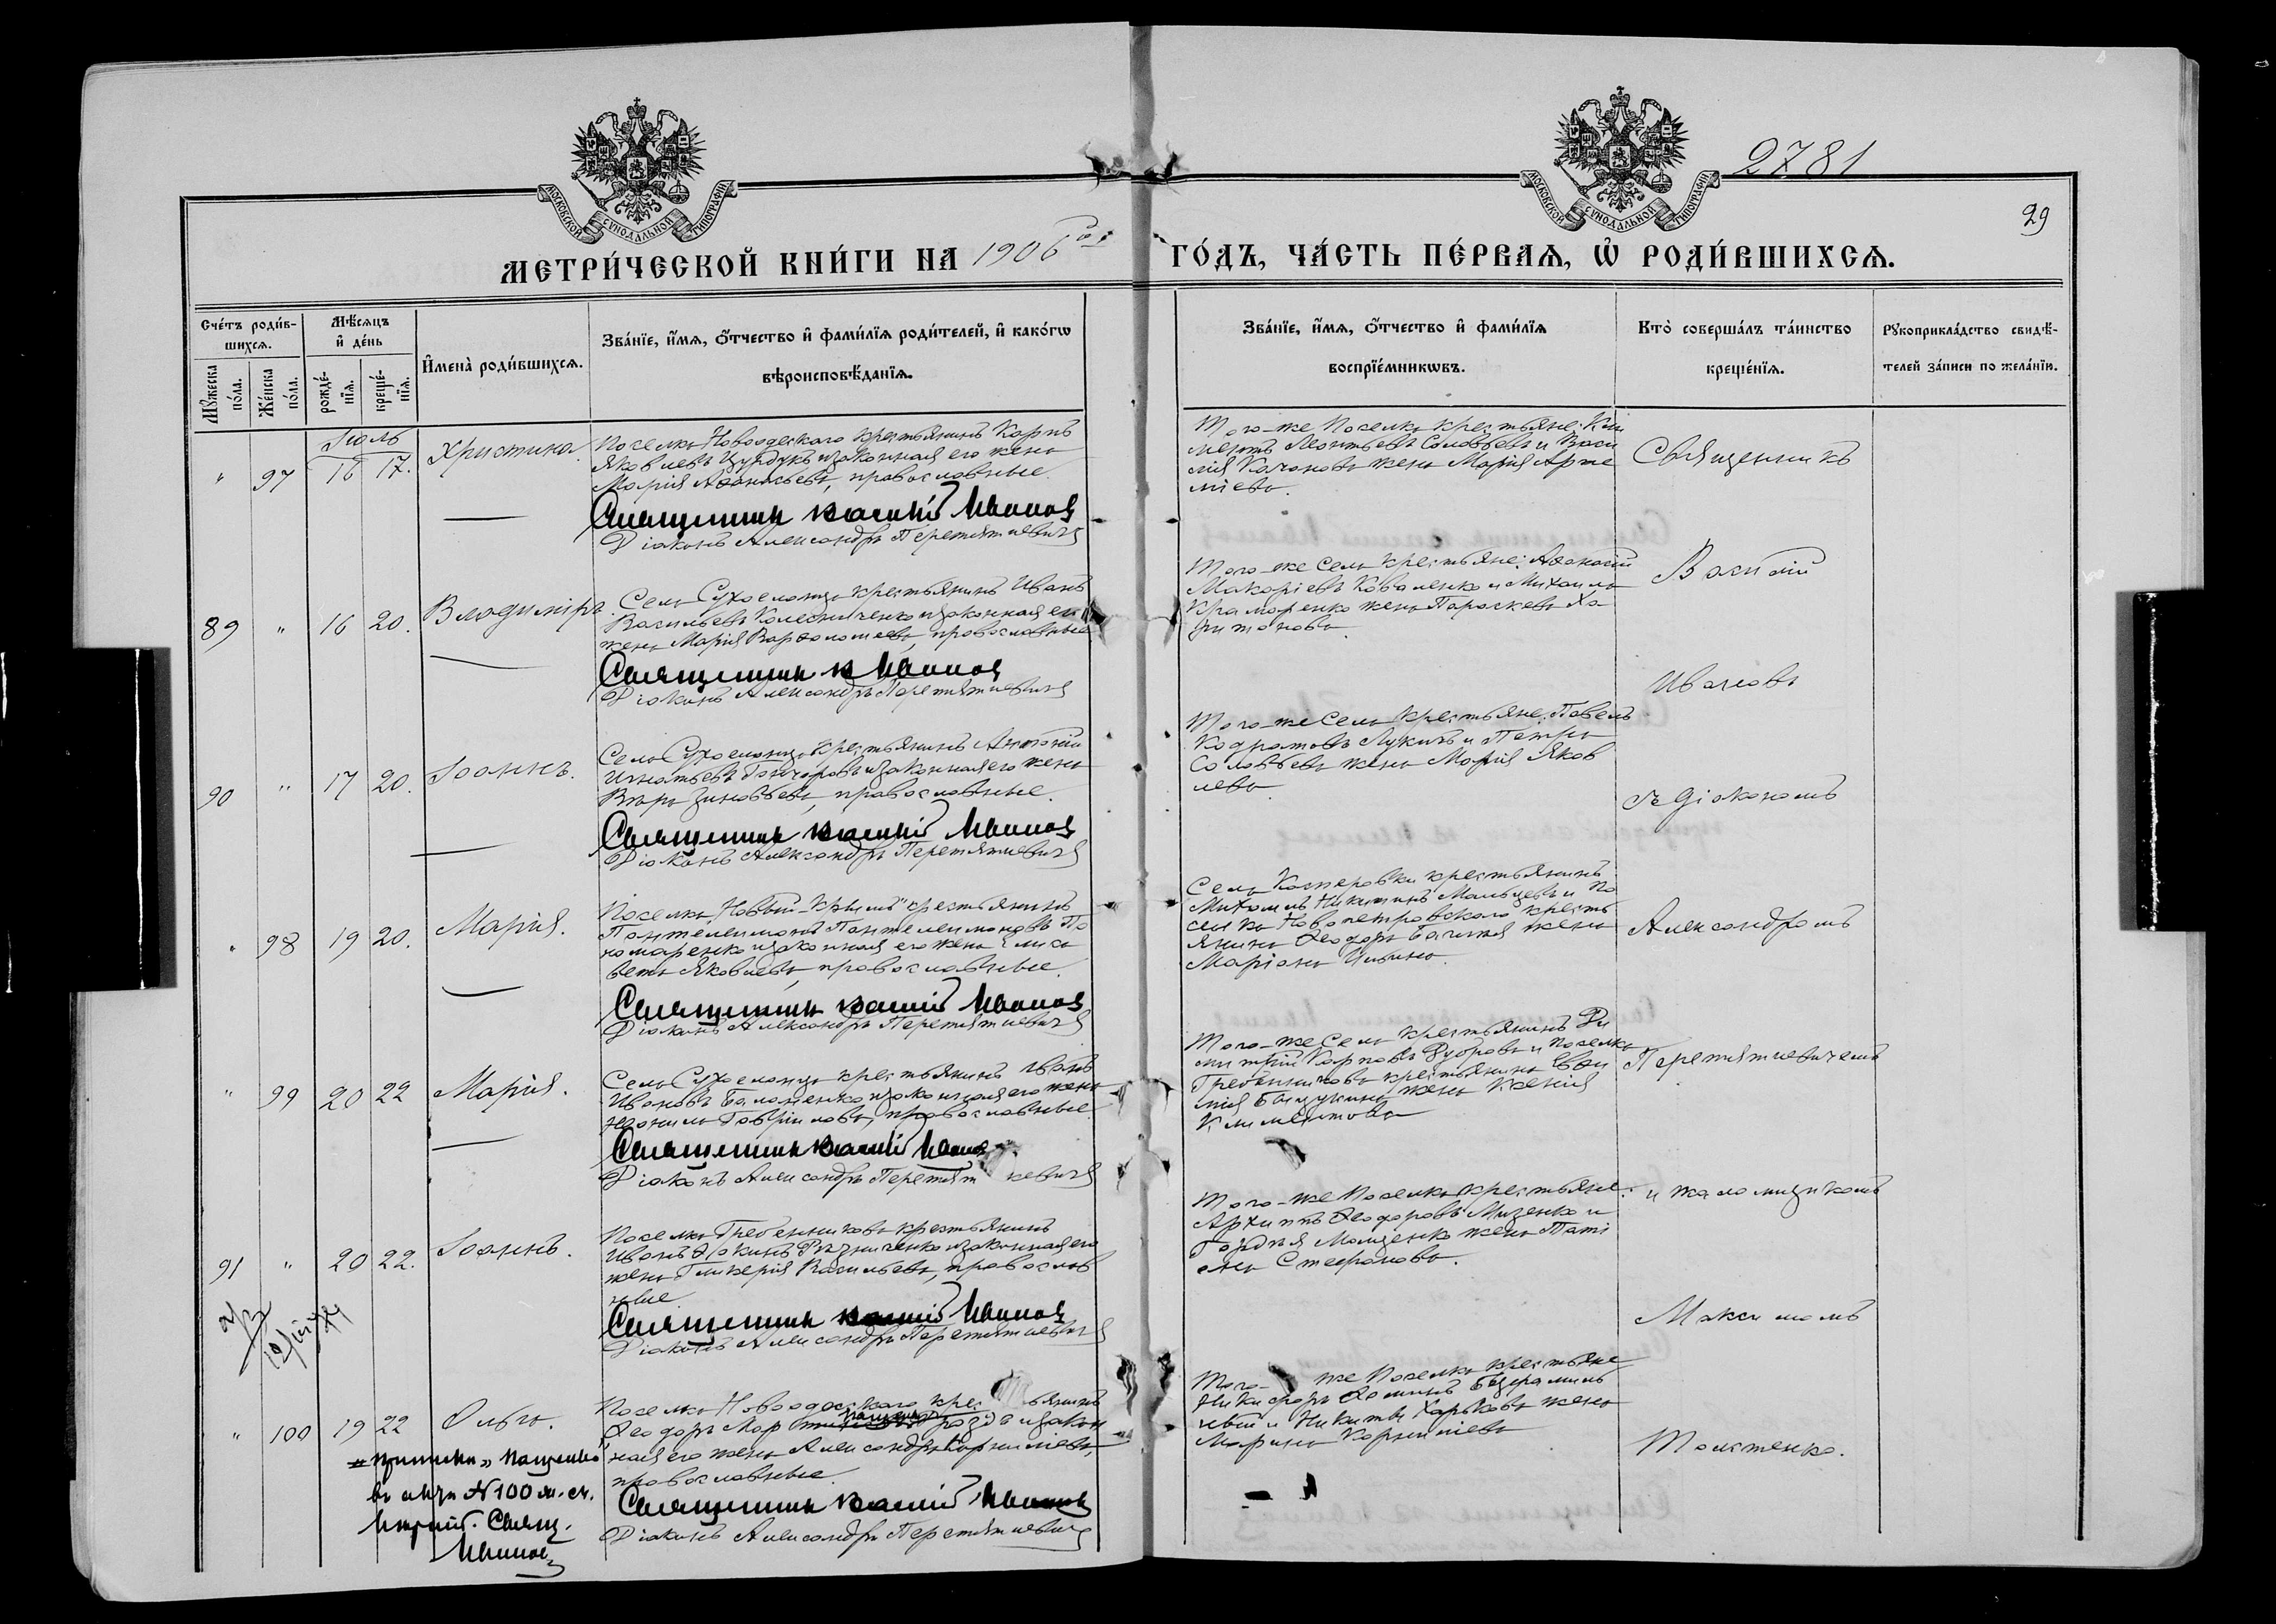 2781
29
МОСКОВСКОЙ СУНОДАЛЬНОЙ ТИПОГРАФІИ
МОСКОВСКОЙ СУНОДАЛЬНОЙ ТИПОГРАФІИ
МЕТРИ́ЧЕСКОЙ КНИ́ГИ НА 1906 ГО́ДЪ, ЧА́СТЬ ПЕ́РВАѦ, Ѡ҆ РОДИ́ВШИХСѦ.
Сче́тъ роди́в-
шихсѧ.
Мꙋ́жеска по́ла.
Же́нска по́ла.
Мѣ́сѧцъ и҆ де́нь
рожде́-нїѧ.
креще́-нїѧ.
И҆мена̀ роди́вшихсѧ.
Зва́нїе, и҆́мѧ, ѻ҆́тчество и҆ фами́лїѧ роди́телей, и҆ како́гѡ
вѣроисповѣ́данїѧ.
Зва́нїе, и҆́мѧ, ѻ҆́тчество и҆ фами́лїѧ
воспрїе́мникѡвъ.
Кто̀ соверша́лъ та́инство
креще́нїѧ.
Рꙋкоприкла́дство свидѣ́-
телей за́писи по жела́нїи.
Іюль
" 97 16 17. Христина.
Поселка Новоодесскаго крестьянинъ Карпъ
Яковлевъ и законная его жена
Марія Аѳанасьева, православные.
Священникъ Василій Ивановъ
Діаконъ Александръ Перетяткевичъ
Того-же Поселка крестьяне: Кли
ментъ Леонтьевъ Соловьевъ и Васи
лія жена Марія Арте
міева.
89 " 16 20. Владиміръ.
Села Сухоеланца крестьянинъ Иванъ
Васильевъ Колесниченко и законная его
жена Марія Варѳоломеева, православные.
Священникъ В Ивановъ
Діаконъ Александръ Перетяткевичъ
Того-же Села крестьяне: Аѳанасій
Макаріевъ Коваленко и Михаила
Крамаренко жена Параскева Ха-
ритонова.
90 " 17 20. Іоаннъ.
Села Сухоеланца крестьянинъ Антоній
Игнатьевъ Гончаровъ и законная его жена
Вѣра Зиновьева, православные.
Священникъ Василій Ивановъ
Діаконъ Александръ Перетяткевичъ
Того-же Села крестьяне: Павелъ
Кодратовъ и Петра
Соловьева жена Марія Яков
лева
" 98 19 20. Марія.
Поселка „Новый-Крымъ" крестьянинъ
Пантелеимонъ Пантелеимоновъ По
номаренко и законная его жена Елиса
вета Яковлева, православные.
Священникъ Василій Ивановъ
Діаконъ Александръ Перетяткевичъ
Села Касперовки крестьянинъ
Михаилъ Никитинъ Мальцевъ и По
селка Новопетровскаго кресть
янина Ѳеодора жена
Маріана Ильина.
" 99 20 22 Марія.
Села Сухоеланца крестьянинъ Иванъ
Ивановъ и законная его жена
Гавріилова, православные.
Священникъ Василій Ивановъ
Діаконъ Александръ Перетяткевичъ
Того-же Села крестьянинъ Ди
митрій Карповъ Дубровъ и поселка
Гребенникова крестьянина
жена Ксенія
Климентова
91 " 20 22. Іоаннъ.
Поселка Гребенникова крестьянинъ
Иванъ Рѣзниченко и законная его
жена Гликерія Васильева, православ
ные.
Священникъ Василій Ивановъ
Діаконъ Александръ Перетяткевичъ
Того-же Поселка крестьяне:
Архипъ Ѳеодоровъ Мизенко и
Гордѣя жена Таті
ана Стефанова.
" 100 19 22 Ольга.
Поселка Новоодесскаго крестьянинъ
Ѳеодоръ и закон
ная его жена Александра Корниліева,
православные.
Священникъ Василій Ивановъ
Діаконъ Александръ Перетяткевичъ
Того-же Поселка крестьяне
Никифоръ Ѳоминъ
и Никиты Харькова жена
Марина Корниліева
въ актѣ №100 м. сч.
Свящ.
Ивановъ
Священникъ
Василій
Ивановъ
съ діакономъ
Александромъ
Перетяткевичемъ
и псаломщикомъ
Максимомъ
Толстенко.